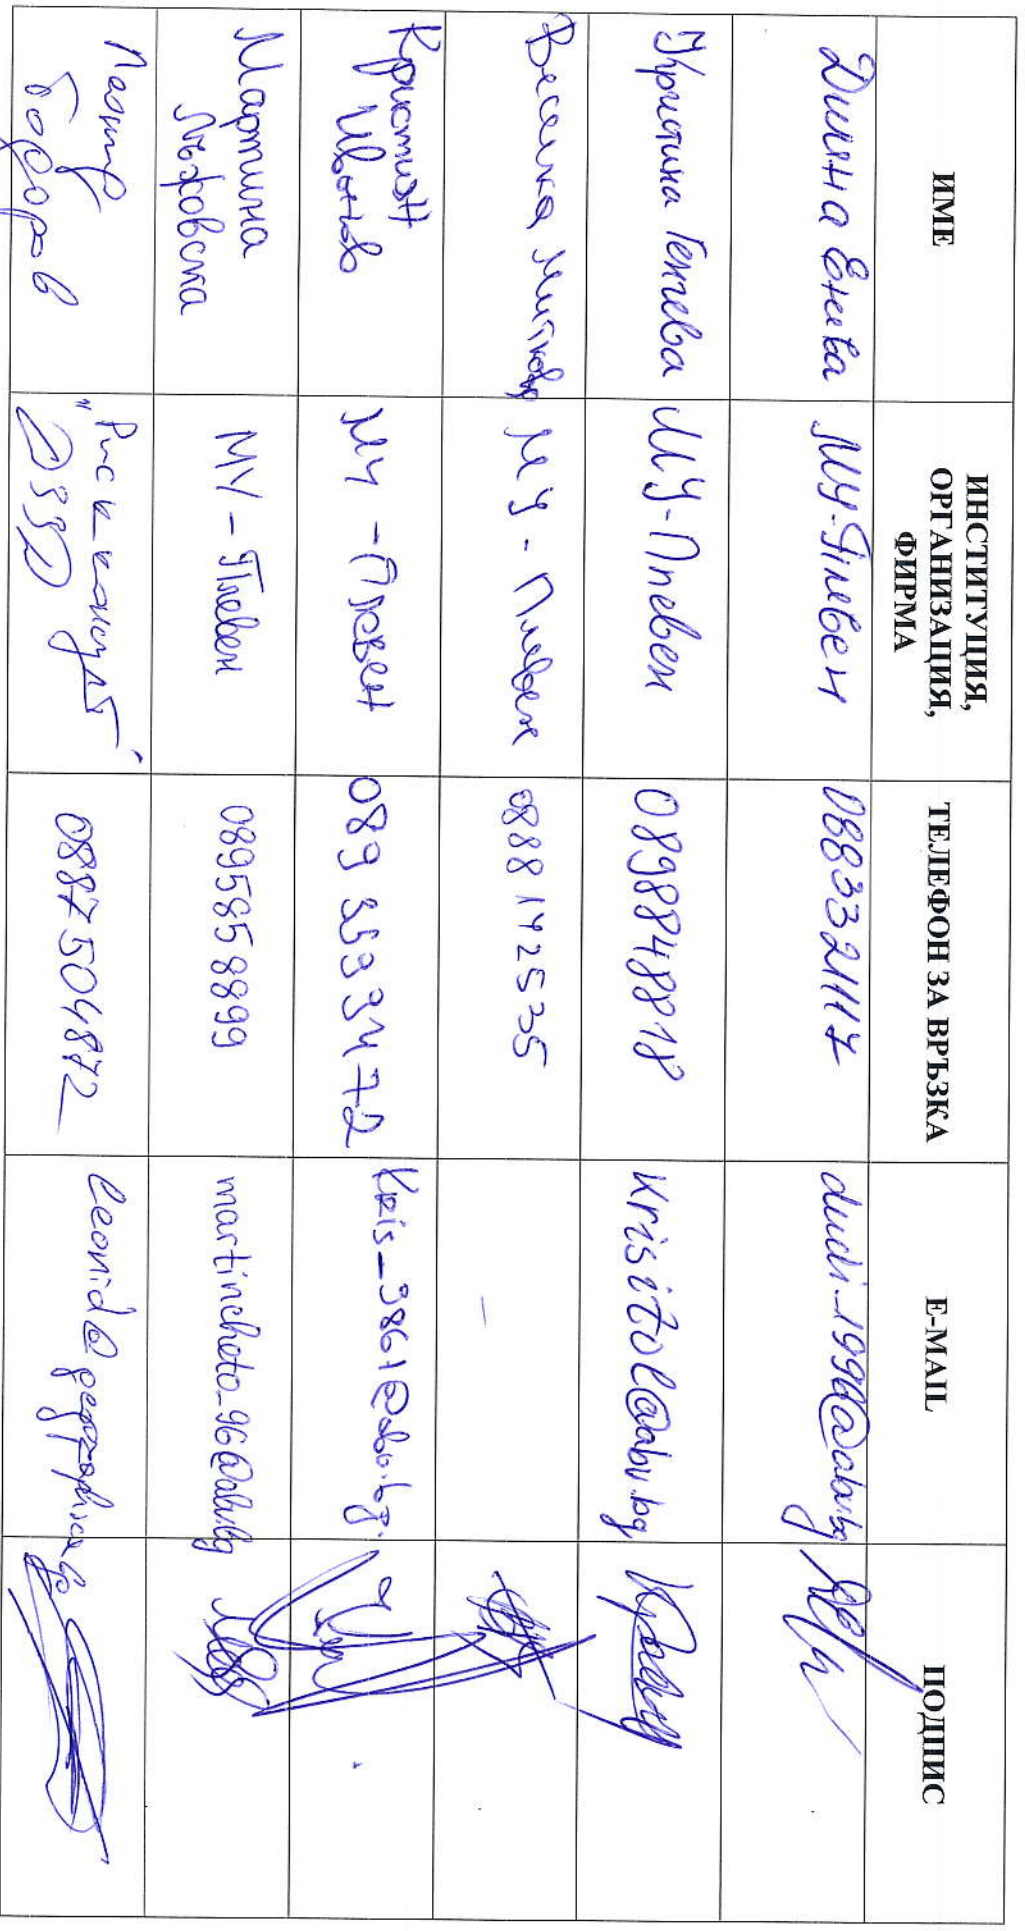 ИМЕ
ИНСТИТУЦИЯ,
ОРГАНИЗАЦИЯ,
ФИРМА
ТЕЛЕФОН ЗА ВРЪЗКА
E-MAIL
ПОДПИС
Диляна Енева
МУ-Плевен
0883321117
dudi_1990@abv.bg
Кристина Генчева
МУ-Плевен
0898848818
krisitol@abv.bg
Веселка Миткова
МУ - Плевен
0888142535
–
Кристиян
Иванов
МУ - Плевен
089 3593472
kris_9861@abv.bg.
Мартина
Лъжовска
МУ - Плевен
0895658899
martincheto_96@abv.bg
боров
"Риск-консулт"
0887504872
leonid@